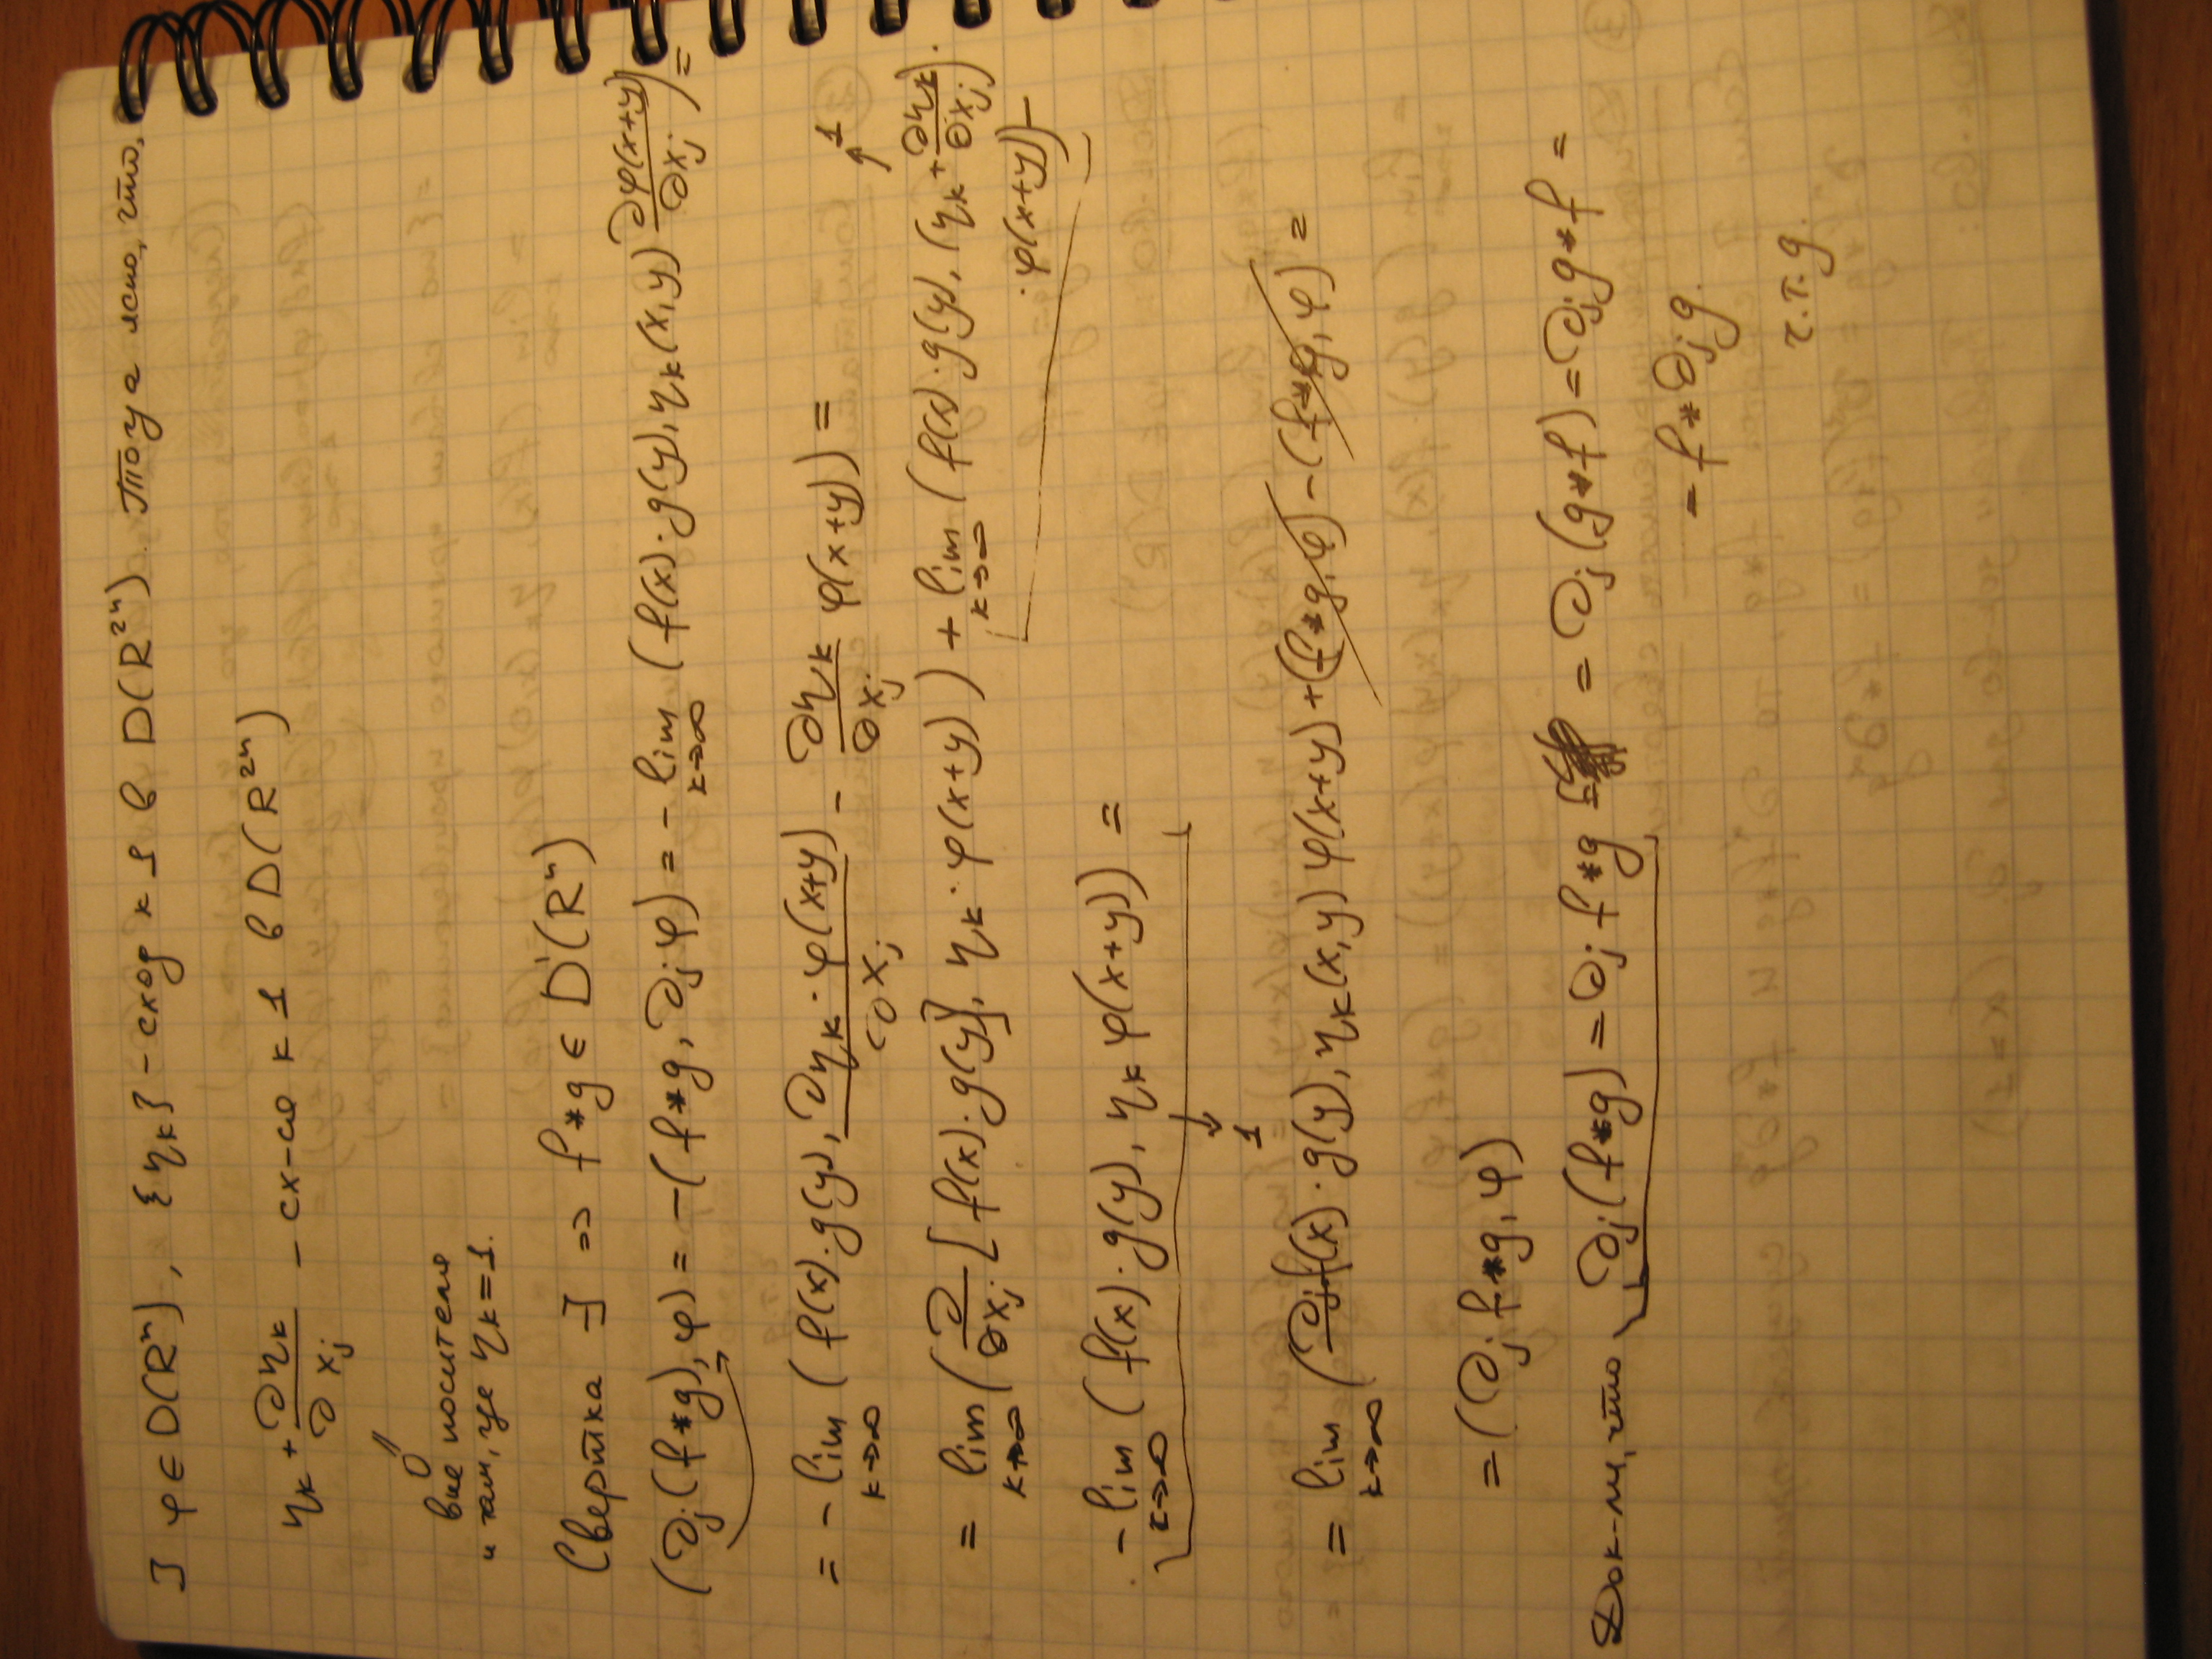 ] φ∈D(Rⁿ), {η_k} - сход к 1 в D(R²ⁿ). Тогда ясно, что,
η_k + ∂η_k/∂x_j - сх-ся к 1 в D(R²ⁿ)
0
вне носителя
и там, где η_k = 1.
Свертка ∃ ⇒ f*g ∈ D'(Rⁿ)
(∂_j(f*g), φ) = -(f*g, ∂_jφ) = - lim_{k→∞} (f(x)·g(y), η_k(x,y) ∂φ(x+y)/∂x_j) =
= - lim_{k→∞} (f(x)·g(y), ∂η_k·φ(x+y)/∂x_j - ∂η_k/∂x_j φ(x+y)) =
→ 1
= lim_{k→∞} (∂/∂x_j [f(x)·g(y)], η_k·φ(x+y)) + lim_{k→∞} (f(x)·g(y), (η_k + ∂η_k/∂x_j)·
·φ(x+y)) -
- lim_{k→∞} (f(x)·g(y), η_k φ(x+y)) =
→ 1
= lim_{k→∞} (∂_j f(x)·g(y), η_k(x,y) φ(x+y) + (f*g, φ) - (f*g, φ) =
= (∂_j f*g, φ)
Док-ли, что ∂_j(f*g) = ∂_j f*g = ∂_j(g*f) = ∂_j g*f =
= f*∂_j g.
ч.т.д